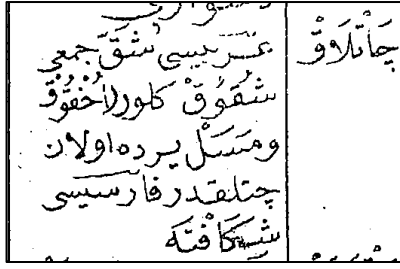 چَاتْلَاقْ
عَرَبِيسِى شَقّ جمعى
شُقُوقْ كلور اُخْقُوقْ
ومَسَلْ يرده اولان
چتلقدر فارسيسى
شِكَافْتَه